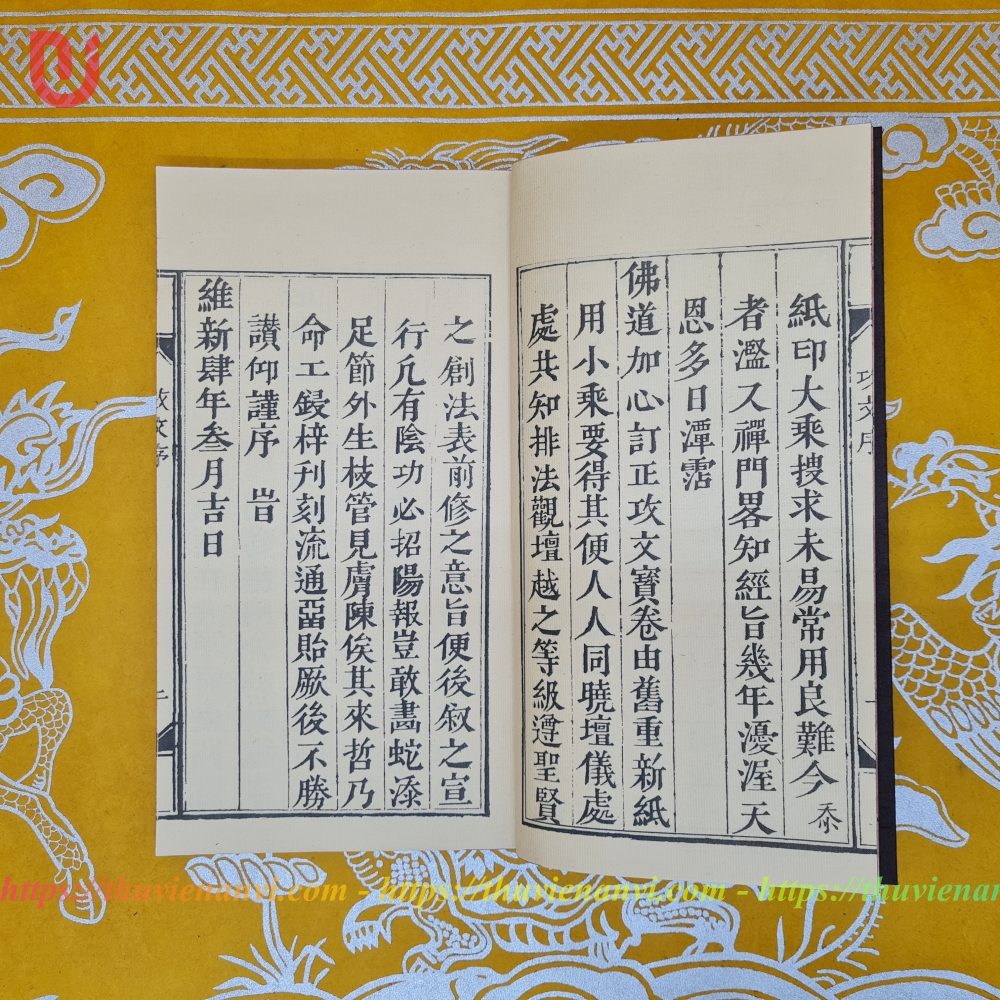 紙印大乗搜求未易常用良難今忝
者濫又禪門畧知經旨幾年漫渥天
恩多日潭霑
佛道加心訂正攻文寶卷由舊重新紙
用小乗要得其便人人同曉壇儀處
處共知排法觀壇越之等級遵聖賢
之創法表前修之意旨便後叙之宣
行凢有陰功必招陽報豈敢畵蛇添
足節外生枝管見膚陳俟其來哲乃
命工鋟梓刊刻流通畱貽厥後不勝
讃仰謹序 旹
維新肆年叄月吉日
攻文序
https://thuvienanvi.com - https://thuvienanvi.com - https://thuvienan